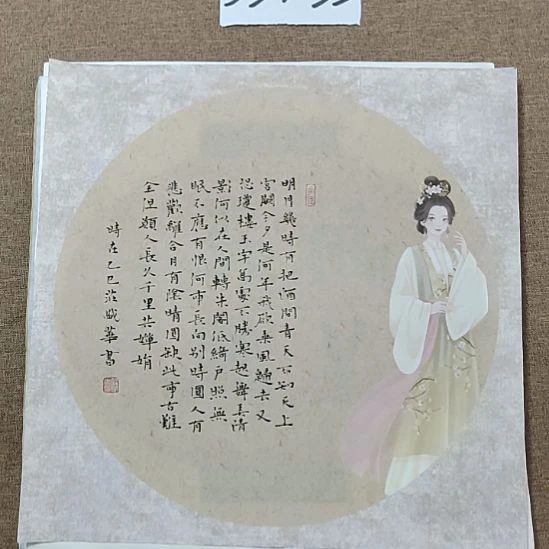 明月幾時有把酒問青天不知天上
宮闕今夕是何年我欲乘風歸去又
恐瓊樓玉宇高處不勝寒起舞弄清
影何似在人間轉朱閣低綺戶照無
眠不應有恨何事長向別時圓人有
悲歡離合月有陰晴圓缺此事古難
全但願人長久千里共嬋娟
時在乙巳 華書